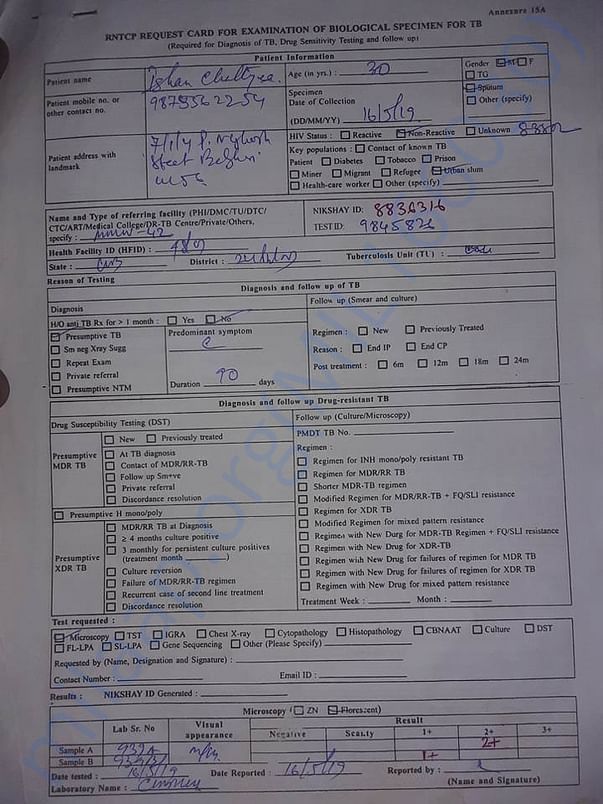 Annexure 15A
RNTCP REQUEST CARD FOR EXAMINATION OF BIOLOGICAL SPECIMEN FOR TB
(Required for Diagnosis of TB, Drug Sensitivity Testing and follow up)
Patient Information
Patient name Ishan
Age (in yrs.) : 30
Gender M F
TG
Patient mobile no. or other contact no.
Specimen
Date of Collection
(DD/MM/YY) 16/5/19
Sputum
Other (specify)
HIV Status : Reactive Non-Reactive Unknown
Patient address with landmark
Key populations : Contact of known TB
Patient Diabetes Tobacco Prison
Miner Migrant Refugee Urban slum
Health-care worker Other (specify)
Name and Type of referring facility (PHI/DMC/TU/DTC/
CTC/ART/Medical College/DR-TB Centre/Private/Others,
specify :
NIKSHAY ID: 8836316
TEST ID: 9845826
Health Facility ID (HFID) :
State : District : Tuberculosis Unit (TU) :
Reason of Testing
Diagnosis and follow up of TB
Diagnosis
Follow up (Smear and culture)
H/O anti TB Rx for > 1 month : Yes No
Presumptive TB
Sm neg Xray Sugg
Repeat Exam
Private referral
Presumptive NTM
Predominant symptom
C
Duration 90 days
Regimen : New Previously Treated
Reason : End IP End CP
Post treatment : 6m 12m 18m 24m
Diagnosis and follow up Drug-resistant TB
Drug Susceptibility Testing (DST)
Follow up (Culture/Microscopy)
PMDT TB No.
Presumptive MDR TB
New Previously treated
At TB diagnosis
Contact of MDR/RR-TB
Follow up Sm+ve
Private referral
Discordance resolution
Presumptive H mono/poly
Presumptive XDR TB
MDR/RR TB at Diagnosis
≥ 4 months culture positive
3 monthly for persistent culture positives
(treatment month )
Culture reversion
Failure of MDR/RR-TB regimen
Recurrent case of second line treatment
Discordance resolution
Regimen :
Regimen for INH mono/poly resistant TB
Regimen for MDR/RR TB
Shorter MDR-TB regimen
Modified Regimen for MDR/RR-TB + FQ/SLI resistance
Regimen for XDR TB
Modified Regimen for mixed pattern resistance
Regimen with New Durg for MDR-TB Regimen + FQ/SLI resistance
Regimen with New Drug for XDR-TB
Regimen with New Drug for failures of regimen for MDR TB
Regimen with New Drug for failures of regimen for XDR TB
Regimen with New Drug for mixed pattern resistance
Treatment Week : Month :
Test requested :
Microscopy TST IGRA Chest X-ray Cytopathology Histopathology CBNAAT Culture DST
FL-LPA SL-LPA Gene Sequencing Other (Please Specify)
Requested by (Name, Designation and Signature) :
Contact Number : Email ID :
Results : NIKSHAY ID Generated :
Microscopy ( ZN Florescent)
Lab Sr. No
Visual appearance
Result
Negative Scanty 1+ 2+ 3+
Sample A 2+
Sample B 1+
Date tested : 16/5/19 Date Reported : 16/5/19 Reported by :
Laboratory Name : (Name and Signature)